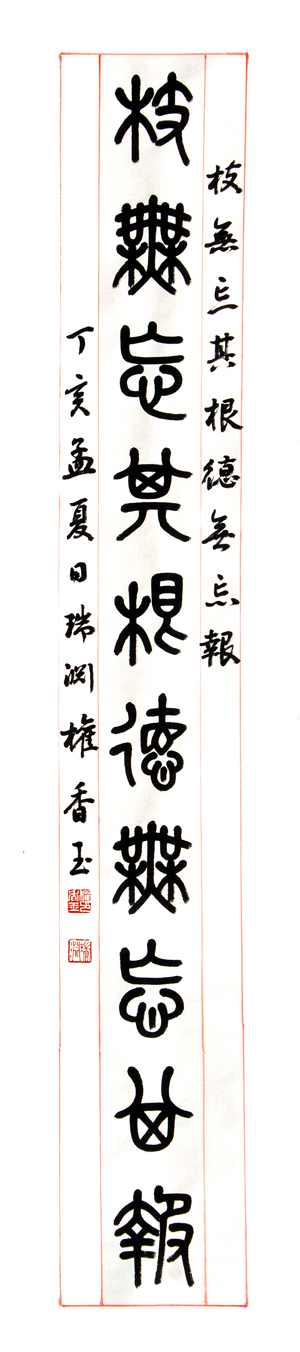 枝無忘其根德無忘報
枝無忘其根德無忘其報
丁亥孟夏日瑞淵權香玉